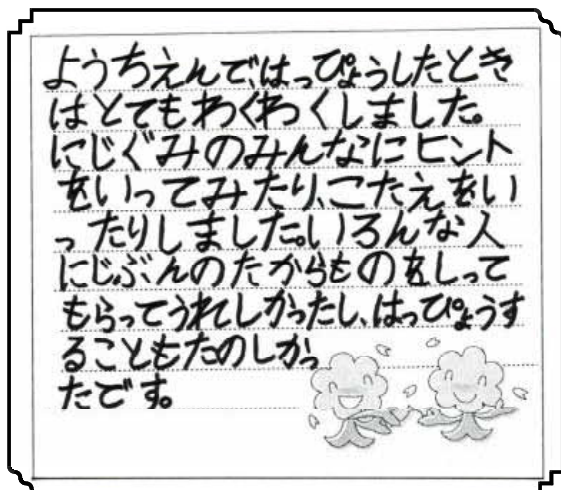 ようちえんで、はっぴょうしたとき
はとてもわくわくしました。
にじぐみのみんなにヒント
をいってみたり、こたえをい
ったりしました。いろんな人
にじぶんのたからものをしって
もらってうれしかったし、はっぴょうす
ることもたのしかっ
たです。